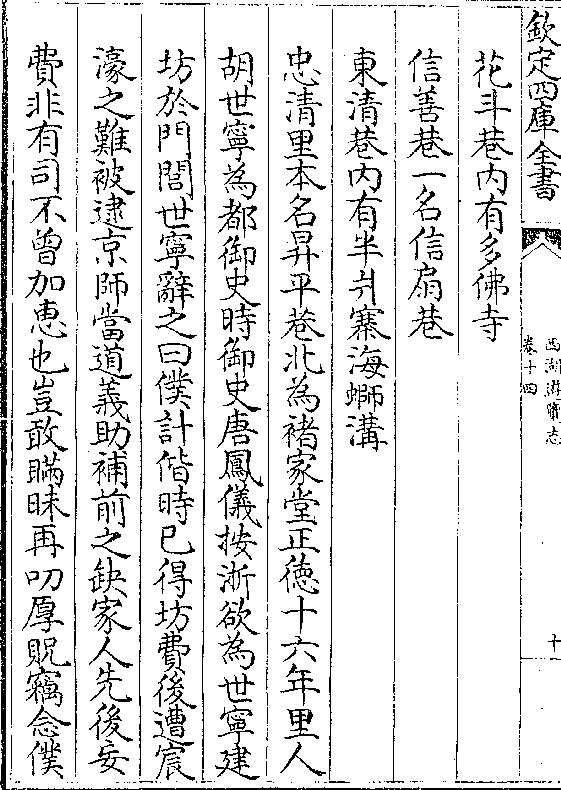 欽定四庫全書
西湖遊覽志
卷十四
十
花斗巷内有多佛寺
信善巷一名信扇巷
東清巷内有半爿寨海螄溝
忠清里本名昇平巷北為褚家堂正德十六年里人
胡世寧為都御史時御史唐鳳儀按浙欲為世寧建
坊於門閭世寧辭之曰僕計偕時已得坊費後遭宸
濠之難被逮京師當道義助補前之缺家人先後妄
費非有司不曾加恵也豈敢瞞昧再叨厚貺竊念僕